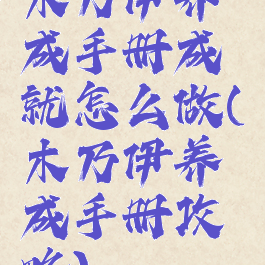 木乃伊养
成手册成
就怎么做(
木乃伊养
成手册攻
略)